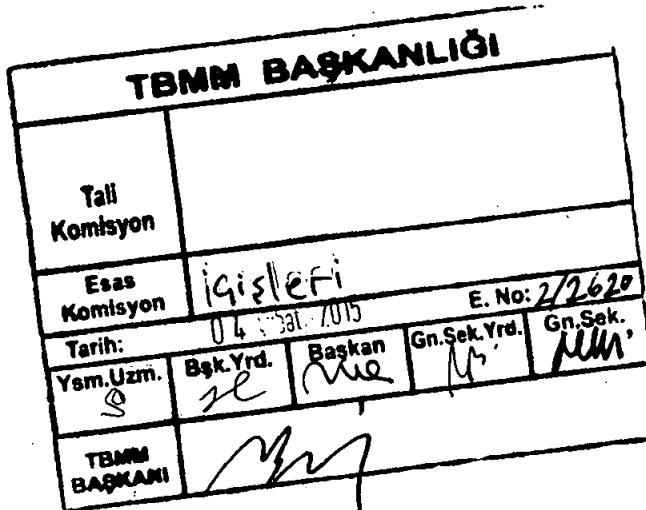 TBMM BAŞKANLIĞI
Tali
Komisyon
Esas
Komisyon
İçişleri
Tarih:
04 Şubat 2015
E. No: 2/2620
Ysm.Uzm.
Bşk.Yrd.
Başkan
Gn.Sek.Yrd.
Gn.Sek.
TBMM
BAŞKANI